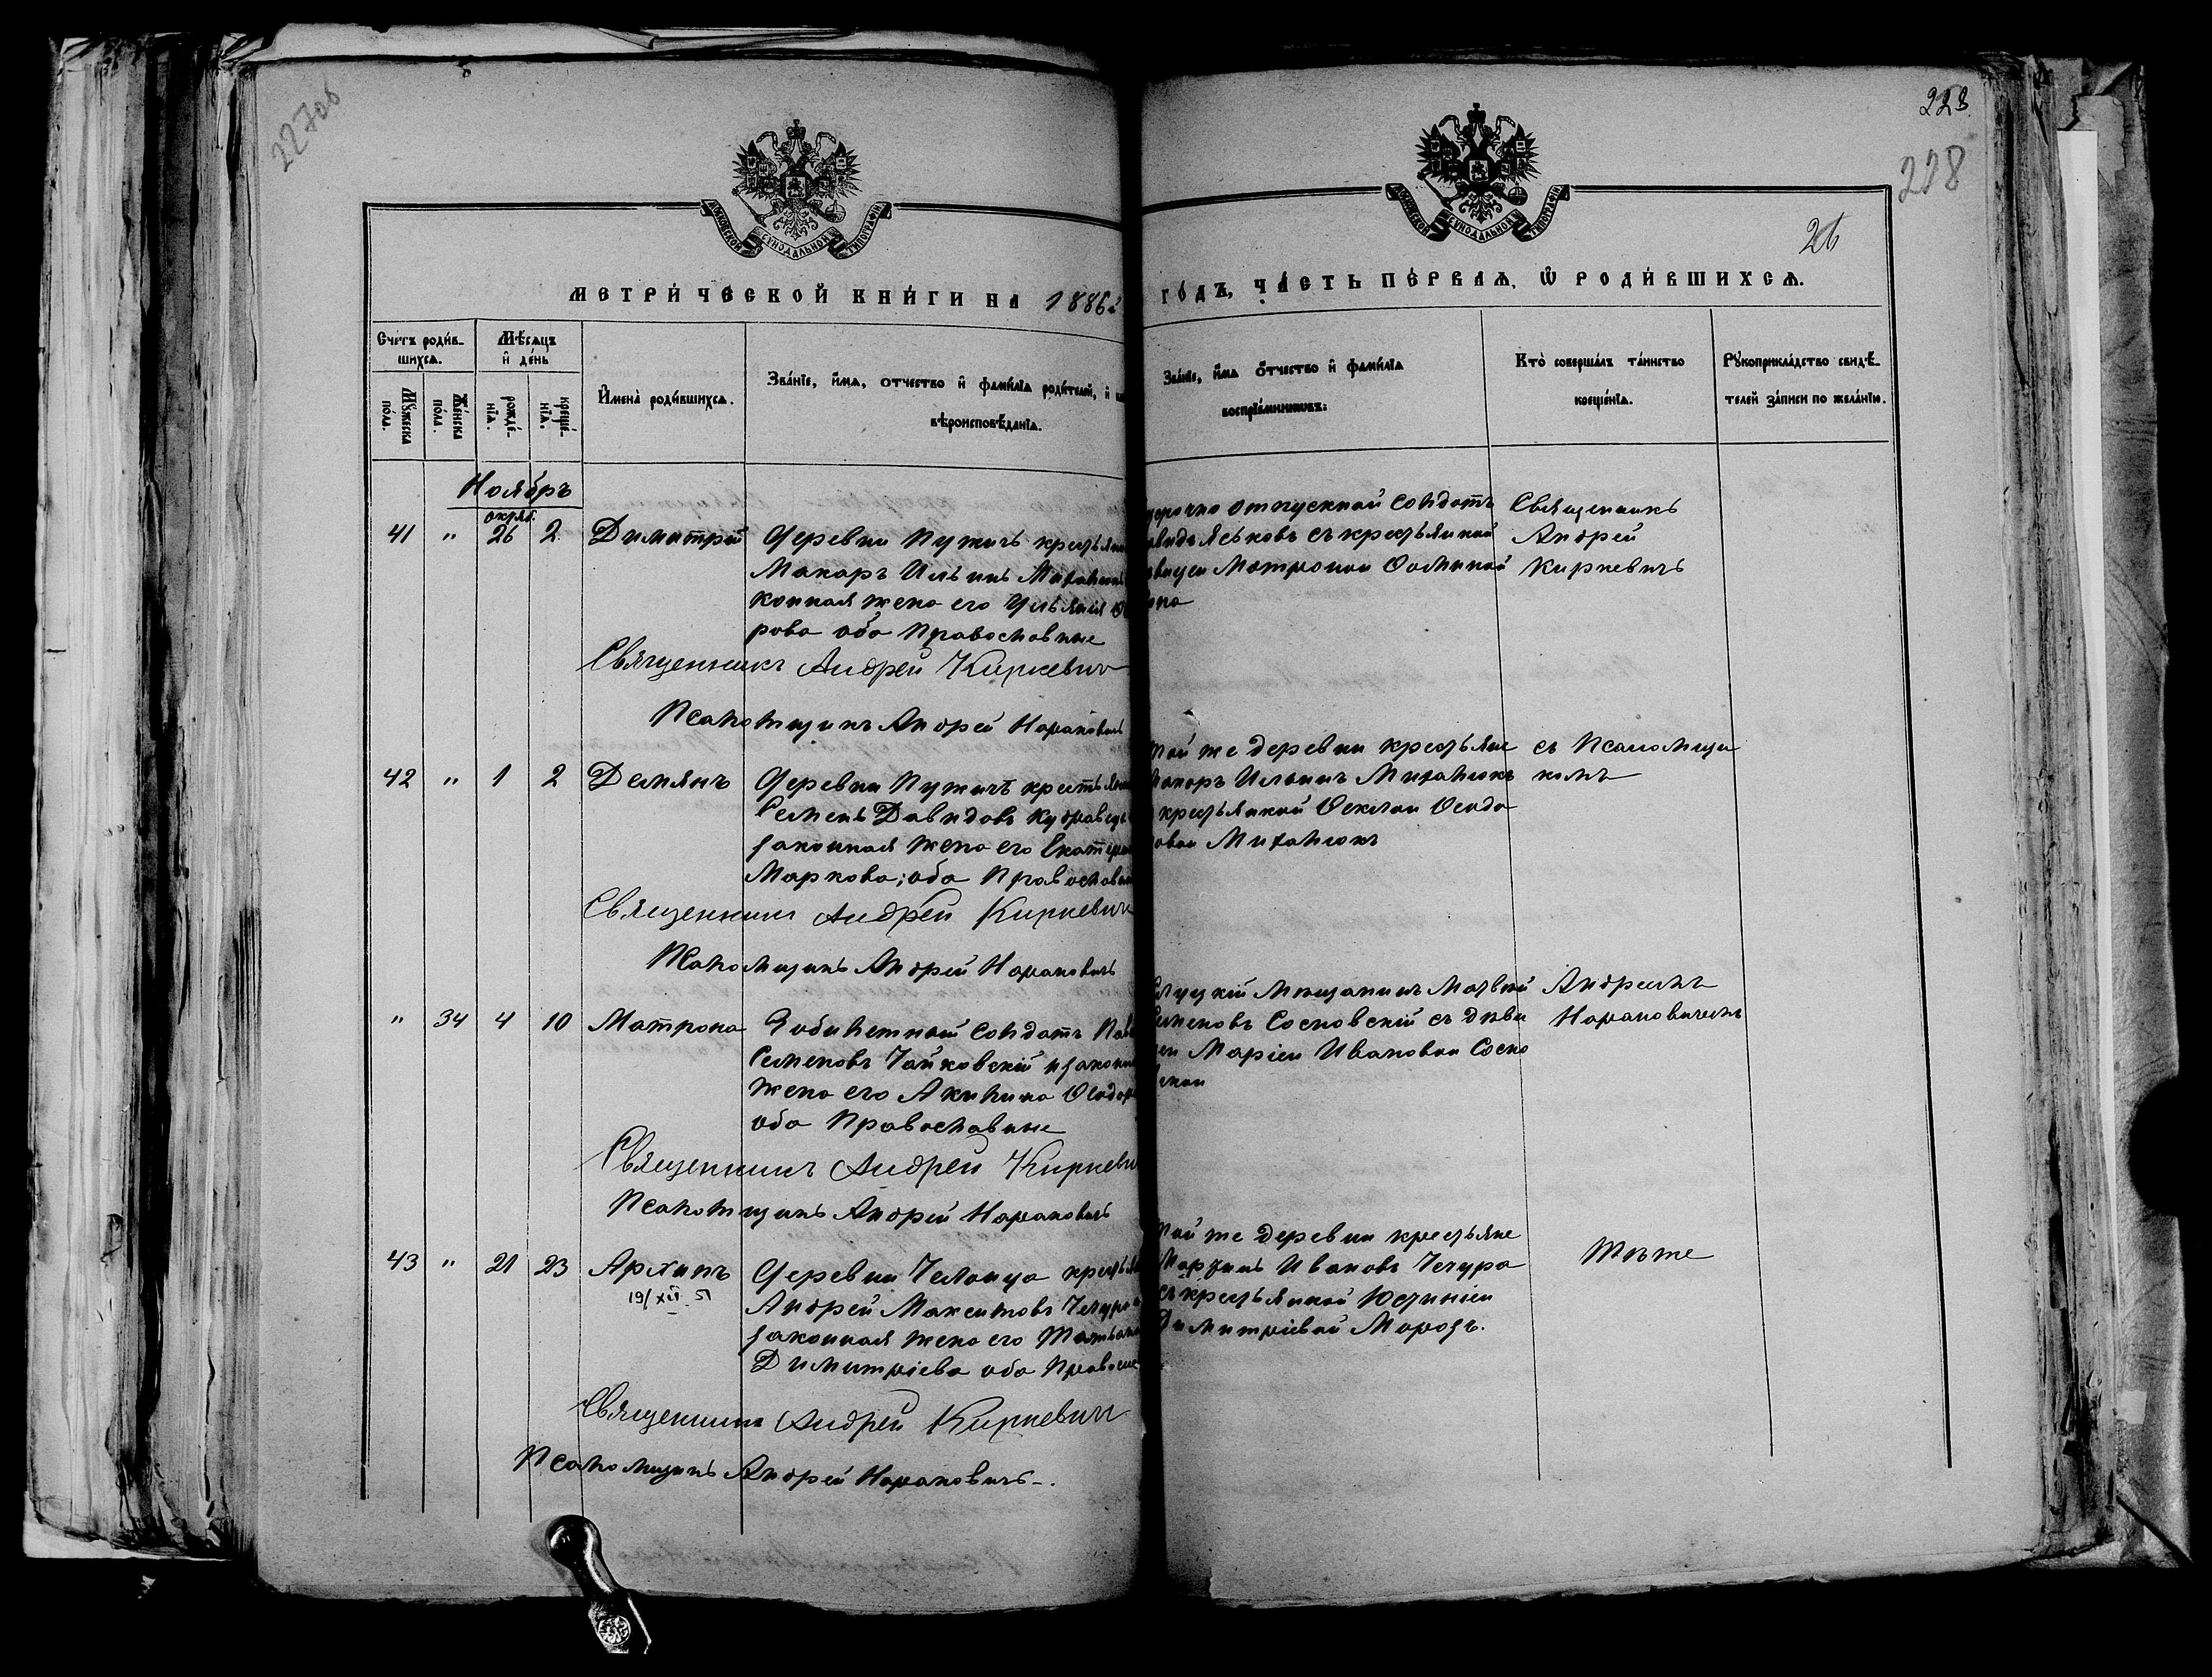 227об
228.
228
26
МОСКОВСКОЙ СѴНОДАЛЬНОЙ ТИПОГРАФІИ
МОСКОВСКОЙ СѴНОДАЛЬНОЙ ТИПОГРАФІИ
МЕТРИ́ЧЕСКОЙ КНИ́ГИ НА 1886 й
ГО́ДЪ, ЧА́СТЬ ПЕ́РВАѦ, Ѡ҆ РОДИ́ВШИХСѦ.
Счетъ роди́в-
шихсѧ.
Мꙋ́жеска
по́ла.
Же́нска
по́ла.
Мѣ́сѧцъ
и҆ де́нь
рожде́-
нїѧ.
креще́-
нїѧ.
И҆мена̀ роди́вшихсѧ.
Зва́нїе, и҆́мѧ, ѻ҆́тчество и҆ фами́лїѧ роди́телей, и҆
вѣроисповѣ́данїѧ.
Зва́нїе, и҆́мѧ ѻ҆́тчество и҆ фами́лїѧ
воспрїе́мниковъ:
Кто̀ соверша́лъ та́инство
креще́нїѧ.
Рꙋкоприкла́дство свидѣ́-
телей за́писи по жела́нїю.
Ноябрь
октяб.
41 " 26 2 Димитрій
Деревни Пужичъ крестьян
Макаръ Ильинъ Михалюк
конная жена его Ульяния
рова оба Православные
Священникъ Андрей Киркевич
Псаломщикъ Андрей Наранович
отпускной солдатъ
Яськовъ съ крестьянкой
Матроной Фоминой
Священникъ
Андрей
Киркевичъ
42 " 1 2 Демянъ
Деревни Пужичъ крестьян
Семенъ Давидовъ Кудравец
законная жена его Екатери
Маркова; оба Православн
Священникъ Андрей Киркевич
Псаломщикъ Андрей Нарановичъ
той же деревни крестьяне
Макаръ Ильинъ Михалюкъ
крестьянкой Феклой Феодо
ровой Михалюкъ
съ Псаломщи
комъ
" 34 4 10 Матрона
Забилетный солдатъ Пав
Семеновъ Чайковскій и законн
жена его Акилина Феодор
оба Православные
Священникъ Андрей Киркеви
Псаломщикъ Андрей Нарановичъ
Слуцкій мѣщанинъ Матвѣй
Семеновъ Сосновскій съ дѣви
цей Маріей Ивановой Сосно
вской
Андреемъ
Нарановичемъ
43 " 21 23 Архипъ
19/XII 51
Деревни Челонца крестьян
Андрей Максимовъ Чечура и
законная жена его Татьяна
Димитріева оба Правосла
Священникъ Андрей Киркевич
Псаломщикъ Андрей Нарановичъ.
той же деревни крестьяне
Мартинъ Ивановъ Чечура
съ крестьянкой Юстиніей
Димитріевой Морозъ.
Тѣ же